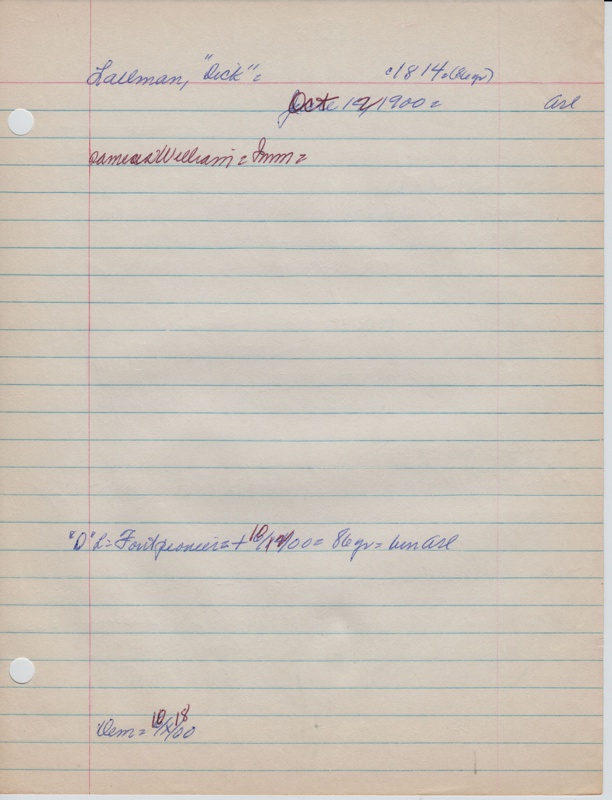 Lallman, "Dick"= c1814=(86yr)
Oct 12/1900= Asl
same as William= Imm=
"D" L= Fort pioneer=+10/12/00= 86yr= bur Asl
Dem= 10/18/00